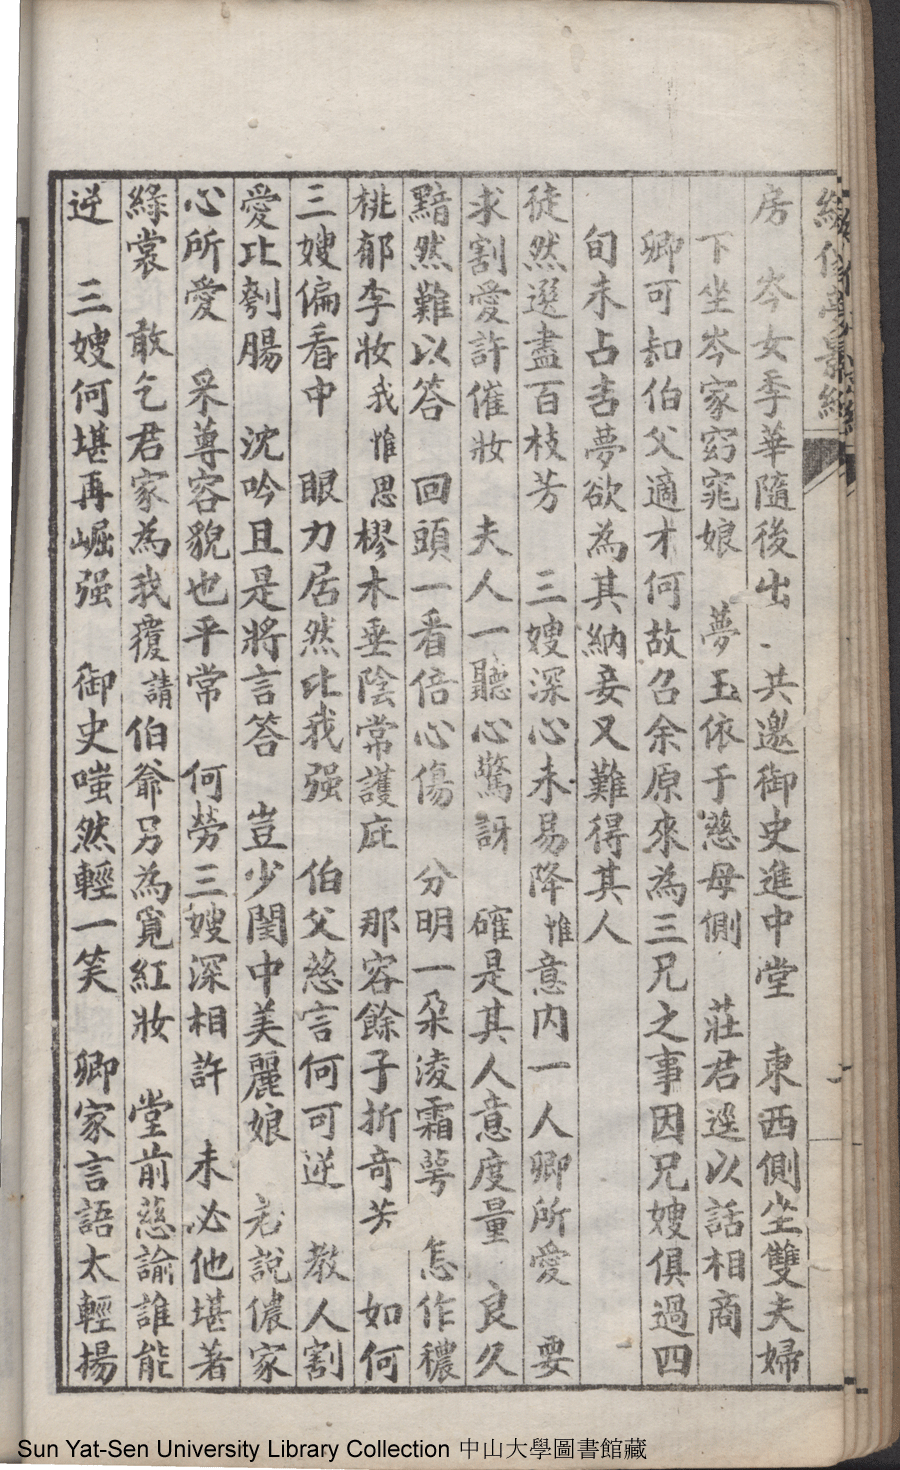 房　岑女季華隨後出　共邀御史進中堂　東西側坐雙夫婦
下坐岑家窈窕娘　夢玉依于慈母側　莊君逕以話相商
卿可知伯父適才何故召余原來為三兄之事因兄嫂俱過四
旬未占吉夢欲為其納妾又難得其人
徒然選盡百枝芳　三嫂深心未易降惟意內一人卿所愛　要
求割愛許催妝　夫人一聽心驚訝　確是其人意度量　良久
黯然難以答　回頭一看倍心傷　分明一朵淩霜萼　怎作穠
桃郁李妝我惟思樛木垂陰常護庇　那容餘子折奇芳　如何
三嫂偏看中　眼力居然比我强　伯父慈言何可逆　教人割
愛比刳腸　沈吟且是將言答　豈少閨中美麗娘　若說儂家
心所愛　采尊容貌也平常　何勞三嫂深相許　未必他堪著
綠裳　敢乞君家為我覆請伯爺另為覓紅妝　堂前慈諭誰能
逆　三嫂何堪再崛强　御史嗤然輕一笑　卿家言語太輕揚
Sun Yat-Sen University Library Collection 中山大學圖書館藏